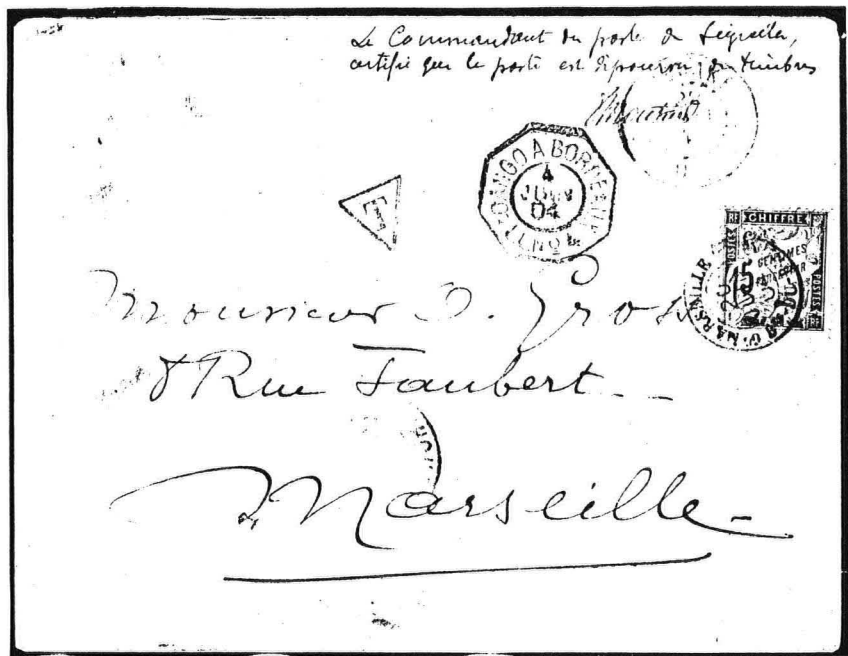 Le Commandant du poste de Séguéla,
certifie que le poste est dépourvu de timbres
LOANGO A BORDEAUX
4
JUIN
04
L.L.Nº4
T
RF CHIFFRE RF
POSTES
15
CENTIMES
A PERCEVOIR
POSTES
MARSEILLE
B. DU-R.
Monsieur O. Gros
8 Rue Faubert
Marseille